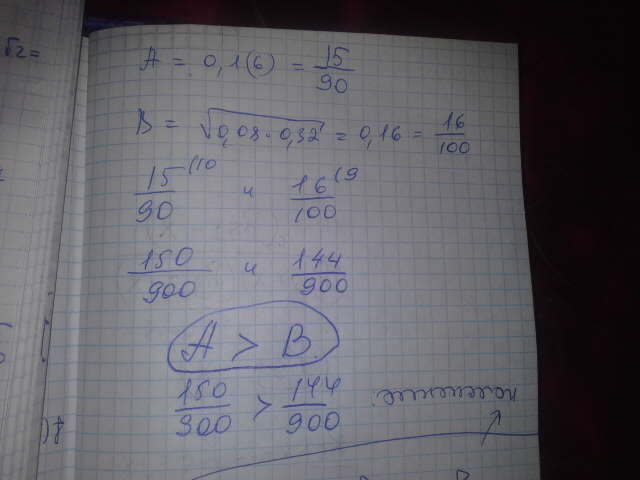 A = 0,1(6) = 15/90
B = √0,08·0,32 = 0,16 = 16/100
15/90 (10 и 16/100 (9
150/900 и 144/900
A > B
150/900 > 144/900
√2 =